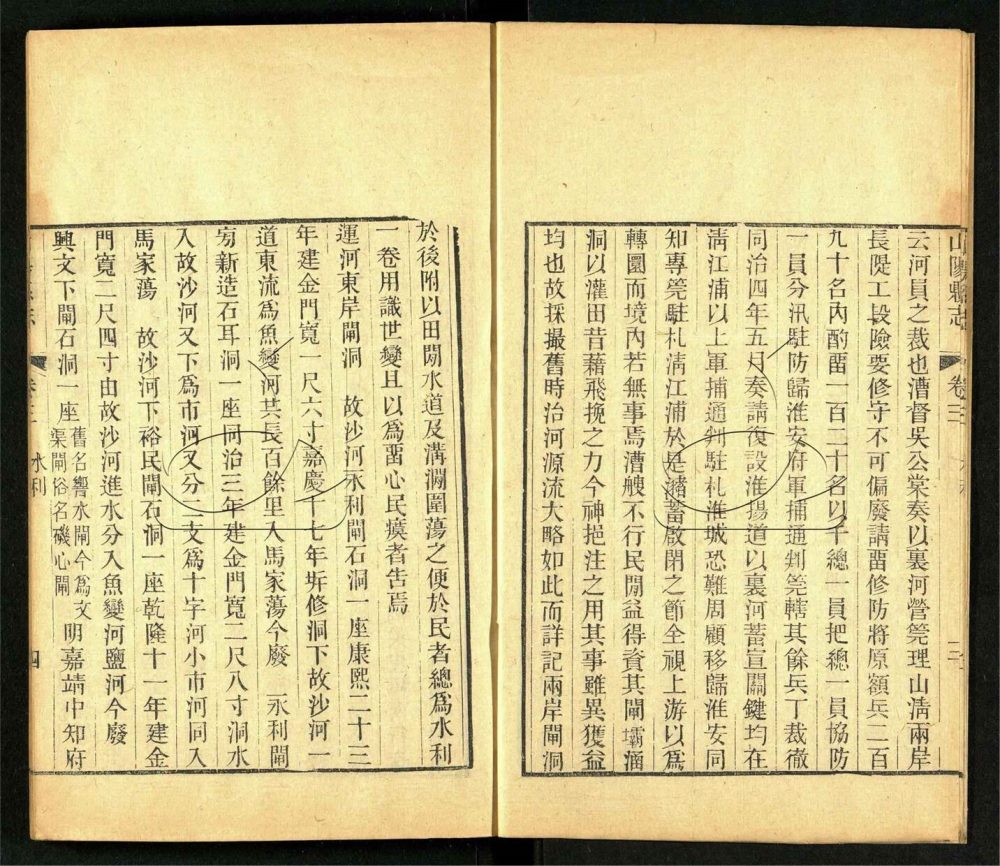 山陽縣志 卷三
云河員之裁也漕督吳公棠奏以裏河營筦理山淸兩岸
長隄工段險要修守不可偏廢請畱修防將原額兵二百
九十名內酌畱一百二十名以千總一員把總一員協防
一員分汛駐防歸淮安府軍捕通判筦轄其餘兵丁裁徹
同治四年五月奏請復設淮揚道以裏河蓄宣關鍵均在
淸江浦以上軍捕通判駐札淮城恐難周顧移歸淮安同
知專筦駐札淸江浦於是瀦蓄啟閉之節全視上游以爲
轉圜而境內若無事焉漕艘不行民閒益得資其閘壩涵
洞以灌田昔藉飛挽之力今神挹注之用其事雖異獲益
均也故採撮舊時治河源流大略如此而詳記兩岸閘洞
於後附以田閒水道及溝澗圍蕩之便於民者總爲水利
一卷用識世變且以爲畱心民瘼者告焉
運河東岸閘洞 故沙河永利閘石洞一座康熙二十三
年建金門寬一尺六寸嘉慶十七年拆修洞下故沙河一
道東流爲魚變河其長百餘里入馬家蕩今廢 永利閘
旁新造石耳洞一座同治三年建金門寬二尺八寸洞水
入故沙河又下爲市河又分二支爲十字河小市河同入
馬家蕩 故沙河下裕民閘石洞一座乾隆十一年建金
門寬二尺四寸由故沙河進水分入魚變河鹽河今廢
興文下閘石洞一座 舊名響水閘今爲文渠閘俗名磯心閘 明嘉靖中知府
卷三 水利 四